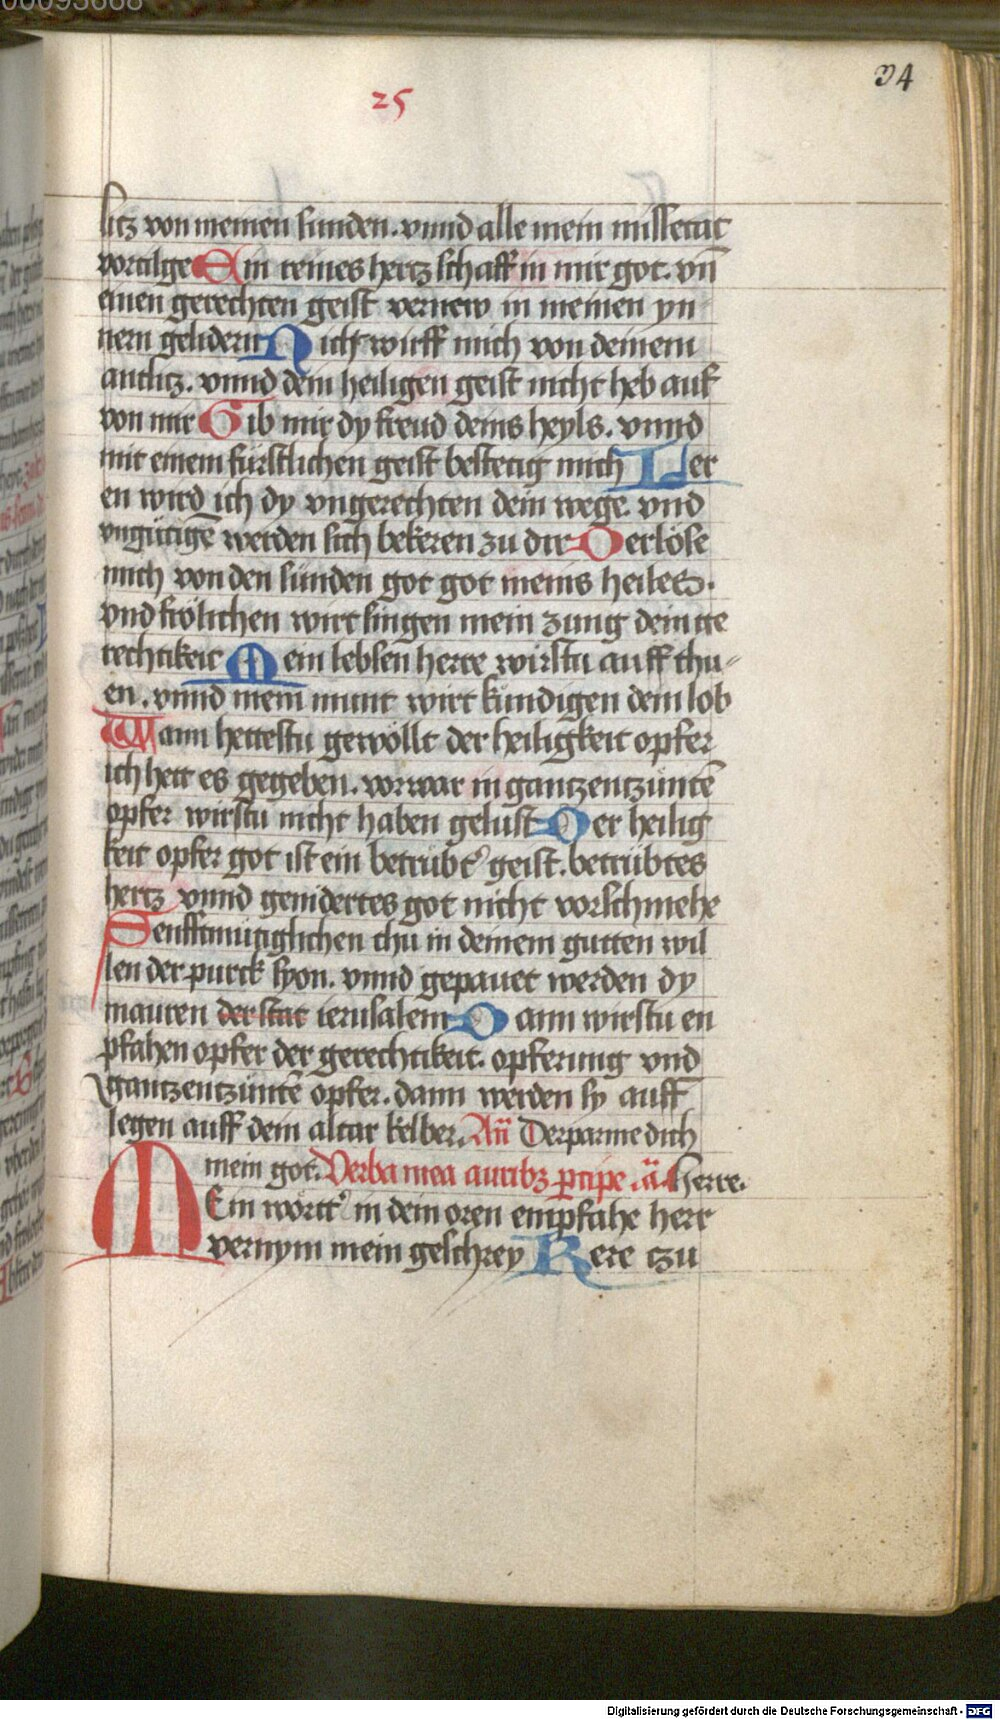 00093668
34
25
litz von meinen sunden. vnnd alle mein missetat
vortilge Ein reines hertz schaff in mir got. vn̄
einen gerechten geist vernew in meinen yn-
nern gelidern Nicht wirff mich von deinem
antlitz. vnnd dein heiligen geist nicht heb auf
von mir Gib mir dy freud deins heyls. vnnd
mit einem fürstlichen geist bestetig mich Ler
en wird ich dy vngerechten dein wege vnd
vngütigē werden sich bekeren zu dir Derlöse
mich von den sünden got got meins heiles.
vnd frölichen wirt singen mein zung dein ge
rechtikeit Mein lebsen herre wirstu auff thu-
en. vnnd mein munt wirt kündigen dein lob
Wann hettestu gewöllt der heiligkeit opfer
ich hett es gegeben. vorwar in gantzentzüntē
opfer wirstu nicht haben gelust Der heilig
keit opfer got ist ein betrübt' geist. betrübtes
hertz vnnd genidertes got nicht vorschmehe
Senfftmütiglichen thu in deinem gutten wil
len der purck syon. vnnd gepauet werden dy
mauren der stat ierusalem Dann wirstu en
pfahen opfer der gerechtikeit. opferung vnd
gantzentzüntē opfer. dann werden sy auff
legen auff dein altar kelber. An̄ Derparme dich
mein got. Verba mea auribz p̱cipe .ā. Herre.
MEin wörtt' in dein oren empfahe herr
vernym mein geschrey Kere tzu
Digitalisierung gefördert durch die Deutsche Forschungsgemeinschaft - DFG